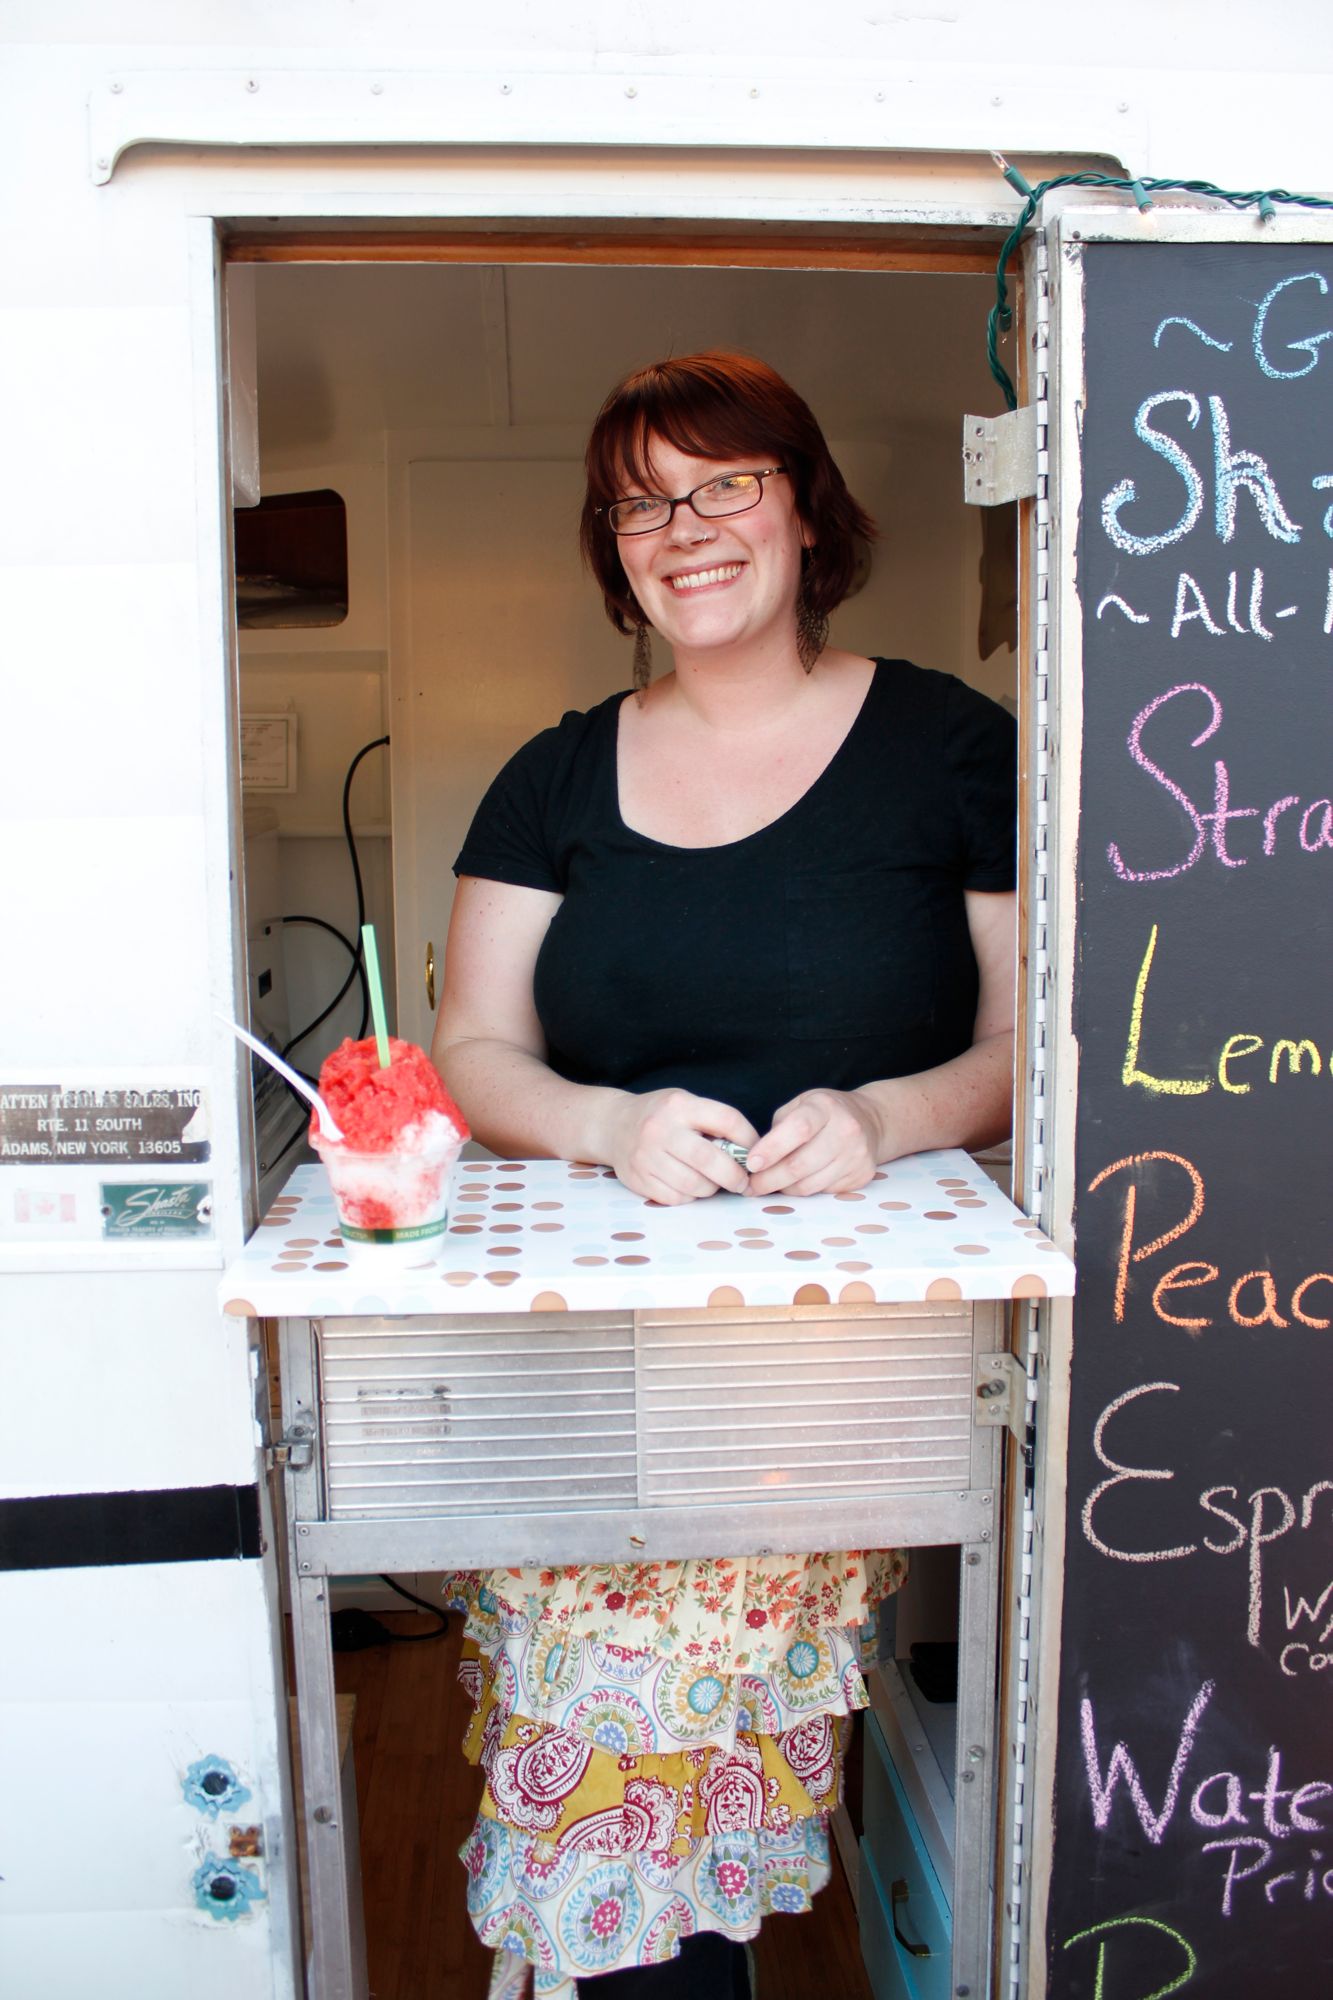 ~G
Sha
~All-
Stra
Lem
Peac
Espr
W/
Co
Wate
Pri
ATTEN TRAILER SALES, INC
RTE. 11 SOUTH
ADAMS, NEW YORK 13605
Shasta
MADE FROM CO